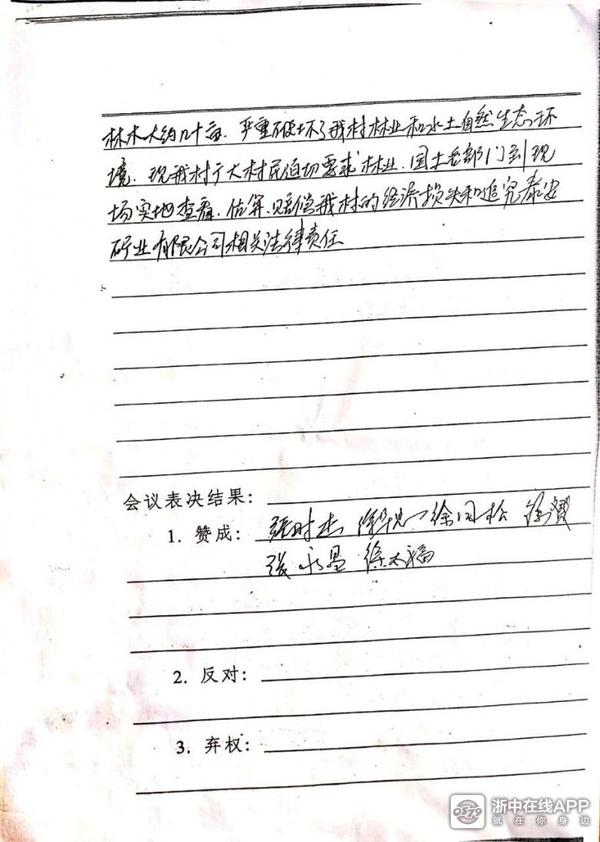 林木大约几十亩．严重破坏了我村林业和水土自然生态环
境．现我村广大村民迫切要求林业．国土老部门到现
场实地查看．估算．赔偿我村的经济损失和追究泰安
矿业有限公司相关法律责任
会议表决结果：
1．赞成：张时杰 徐同松
张永显 徐太福
2．反对：
3．弃权：
浙中在线APP
就在你身边